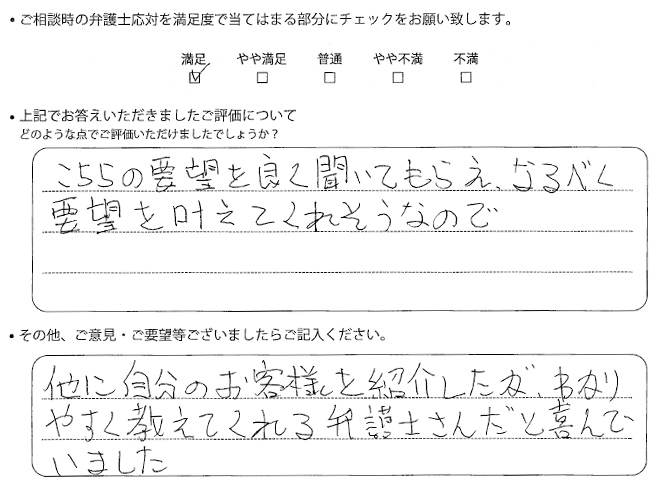 • ご相談時の弁護士応対を満足度で当てはまる部分にチェックをお願い致します。
満足 やや満足 普通 やや不満 不満
☑ □ □ □ □
• 上記でお答えいただきましたご評価について
どのような点でご評価いただけましたでしょうか？
こちらの要望を良く聞いてもらえ、なるべく
要望を叶えてくれそうなので
• その他、ご意見・ご要望等ございましたらご記入ください。
他に自分のお客様を紹介したが、わかり
やすく教えてくれる弁護士さんだと喜んで
いました